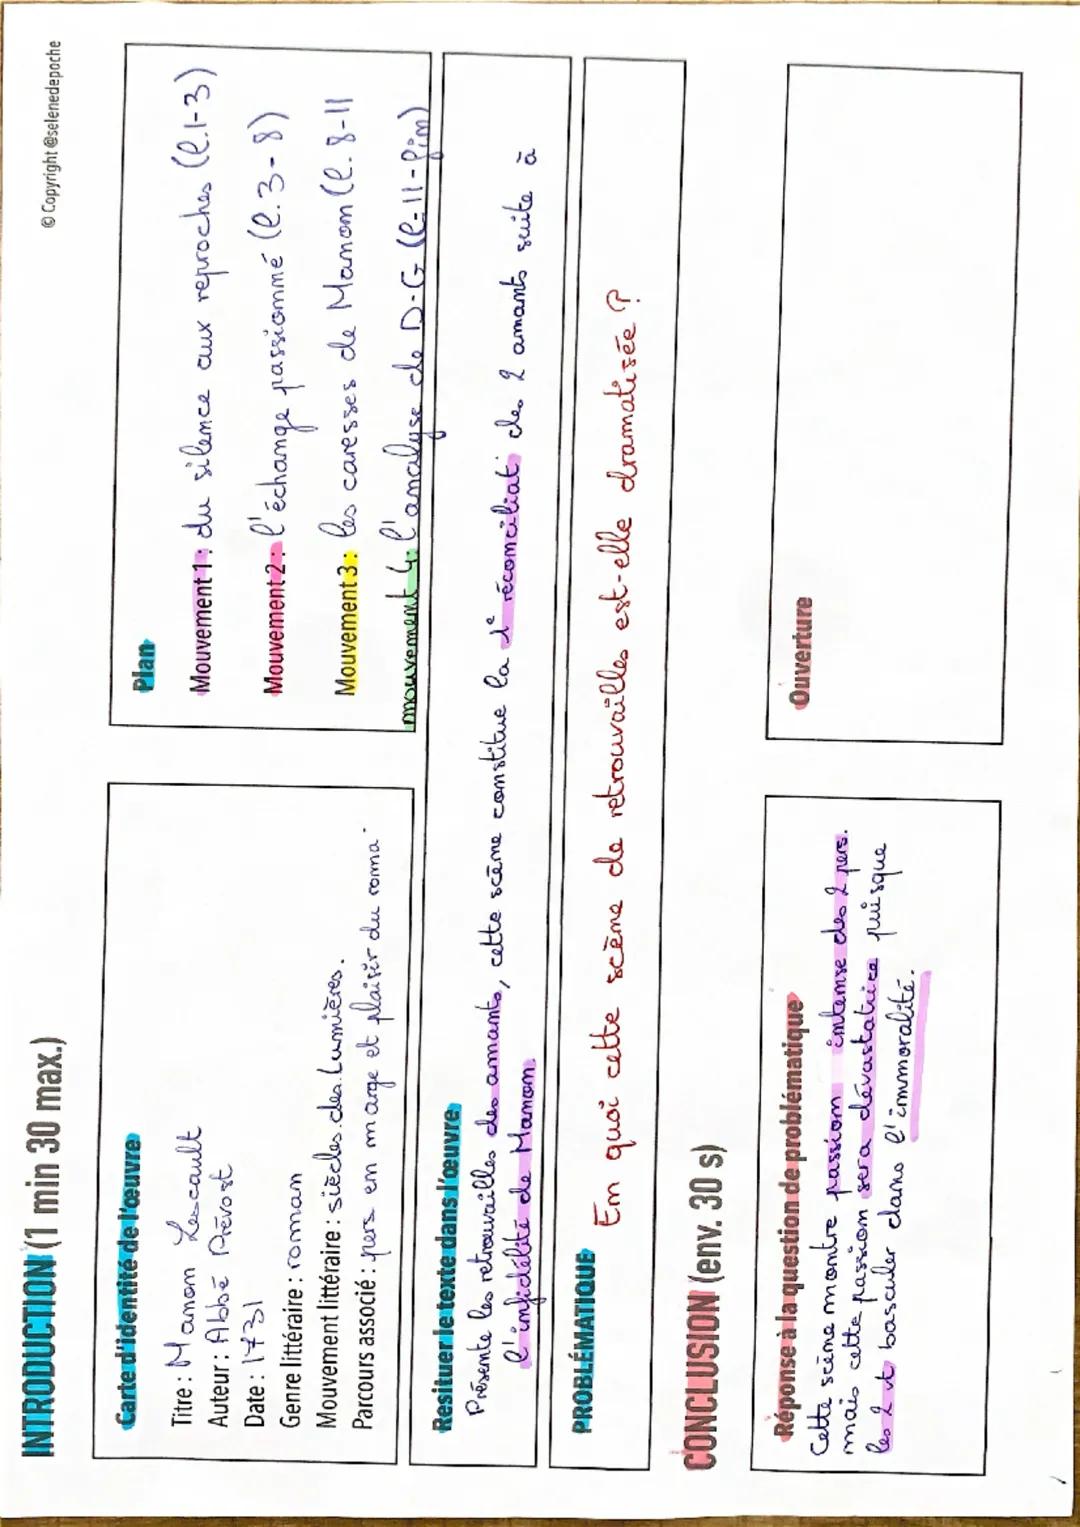 © Copyright @selenedepoche
INTRODUCTION (1 min 30 max.)
Carte d'identité de l'œuvre
Titre : Manon Lescault
Auteur : Abbé Prévost
Date : 1731
Genre littéraire : roman
Mouvement littéraire : siècles des Lumières.
Parcours associé : pers en marge et plaisir du roma
Plan
Mouvement 1 : du silence aux reproches (l.1-3)
Mouvement 2 : l'échange passionné (l.3-8)
Mouvement 3 : les caresses de Manon (l.8-11
mouvement 4: l'analyse de D-G (l-11-fin)
Resituer le texte dans l'œuvre
Présente les retrouvailles des amants, cette scène constitue la 1e réconciliat° des 2 amants suite à
l'infidélité de Manon.
PROBLÉMATIQUE En quoi cette scène de retrouvailles est-elle dramatisée ?
CONCLUSION (env. 30 s)
Réponse à la question de problématique
Cette scène montre passion intense des 2 pers.
mais cette passion sera dévastatrice puisque
les 2 vt basculer dans l'immoralité.
Ouverture